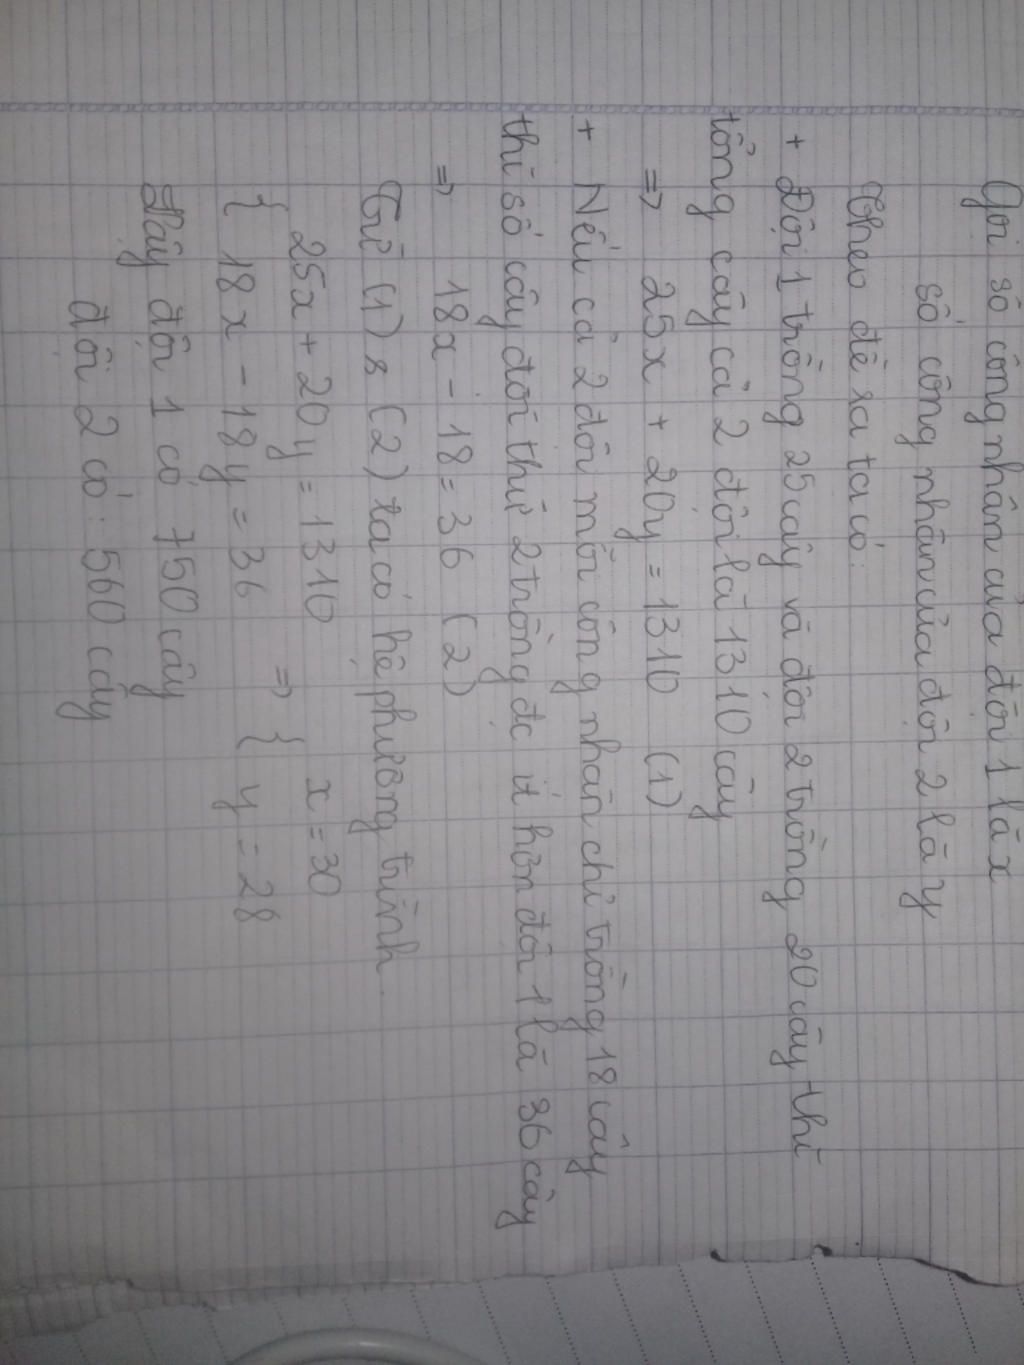 Gọi số công nhân của đội 1 là x
số công nhân của đội 2 là y
Theo đề ra ta có:
+ Đội 1 trồng 25 cây và đội 2 trồng 20 cây thì
tổng cây cả 2 đội là 1310 cây
=> 25x + 20y = 1310 (1)
+ Nếu cả 2 đội mỗi công nhân chỉ trồng 18 cây
thì số cây đội thứ 2 trồng đc ít hơn đội 1 là 36 cây
=> 18x - 18 = 36 (2)
Từ (1) & (2) ta có hệ phương trình
{ 25x + 20y = 1310
18x - 18y = 36 => { x = 30
y = 28
Vậy đội 1 có 750 cây
đội 2 có: 560 cây